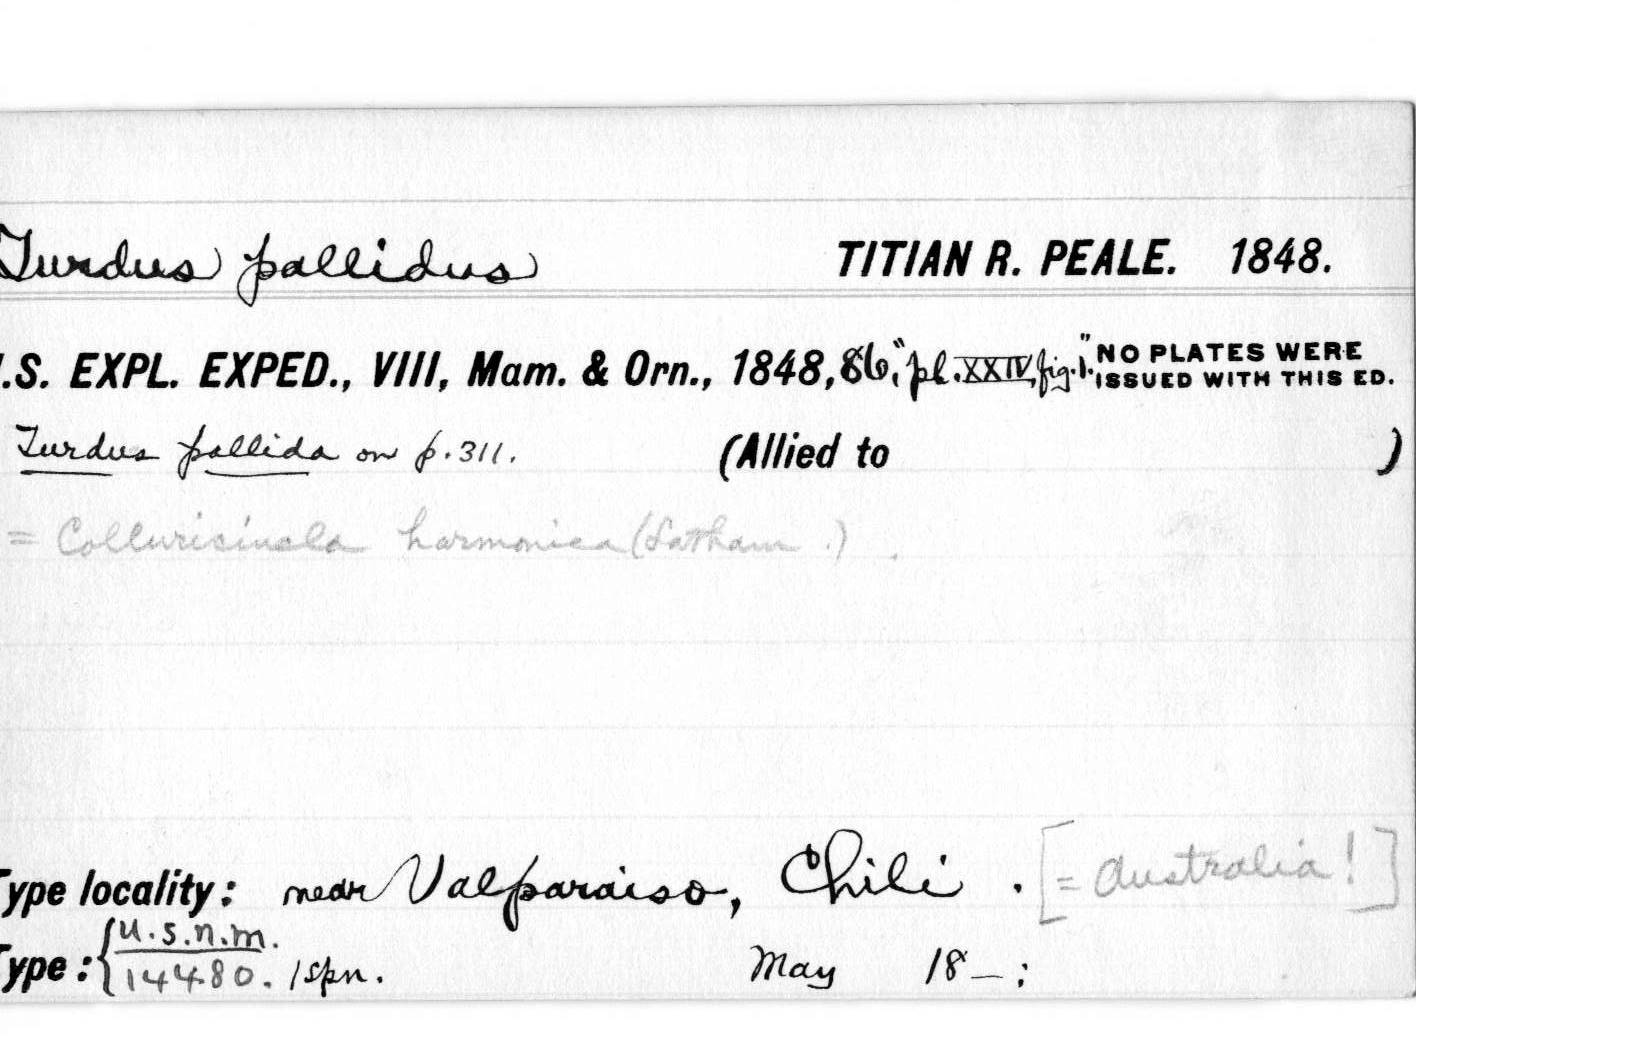 Turdus pallidus TITIAN R. PEALE. 1848.
.S. EXPL. EXPED., VIII, Mam. & Orn., 1848, 86, "pl. XXIV, fig. 1." NO PLATES WERE
ISSUED WITH THIS ED.
Turdus pallida on p. 311. (Allied to )
= Collurisincla harmonica (Latham.).
Type locality: near Valparaiso, Chili. [= Australia!]
Type: { U.S.N.M.
14480. 1 spn. May 18—;